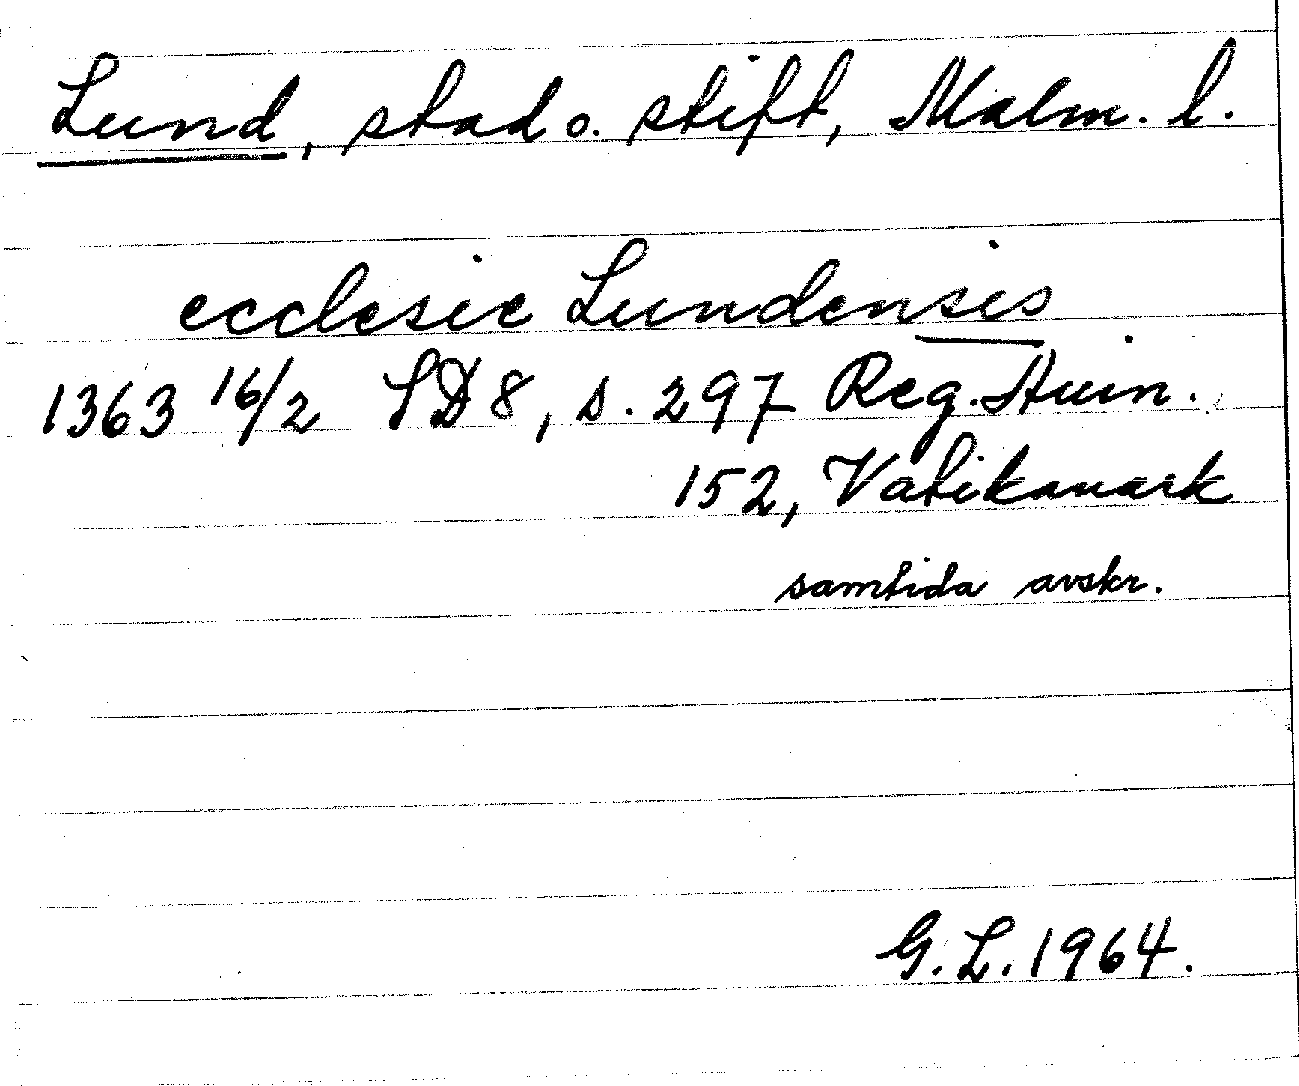 Lund, stad o. stift, Malm. l.
ecclesie Lundensis
1363 16/2 SD 8, s. 297 Reg. Avin.
152, Vatikanark
samtida avskr.
G. L. 1964.